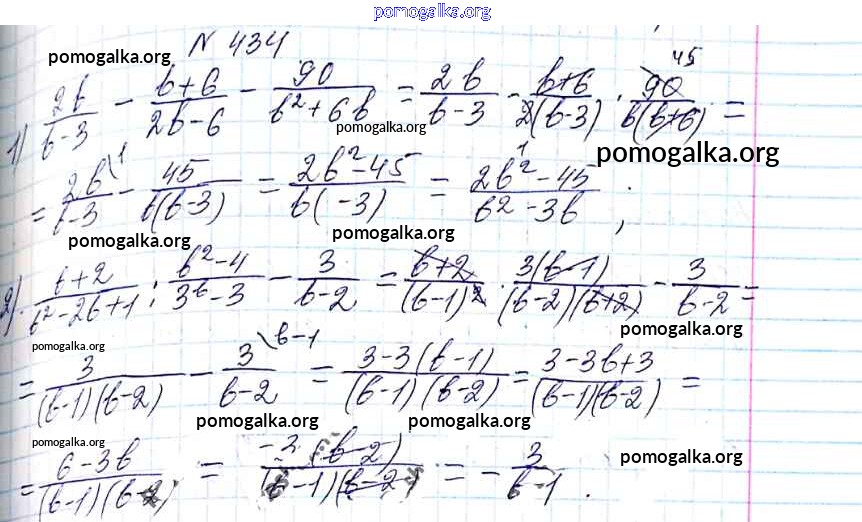 pomogalka.org
N 434
45
pomogalka.org
1) 2b/(b-3) - (b+6)/(2b-6) - 90/(b²+6b) = 2b/(b-3) - (b+6)/(2(b-3)) · 90/(b(b+6)) =
pomogalka.org
pomogalka.org
= 2b/(b-3) - 45/(b(b-3)) = (2b²-45)/(b(-3)) = (2b²-45)/(b²-3b) ;
pomogalka.org
pomogalka.org
2) (b+2)/(b²-2b+1) : (b²-4)/(3b-3) - 3/(b-2) = (b+2)/(b-1)² · 3(b-1)/((b-2)(b+2)) - 3/(b-2) =
pomogalka.org
pomogalka.org
b-1
= 3/((b-1)(b-2)) - 3/(b-2) = (3-3(b-1))/((b-1)(b-2)) = (3-3b+3)/((b-1)(b-2)) =
pomogalka.org
pomogalka.org
pomogalka.org
pomogalka.org
= (6-3b)/((b-1)(b-2)) = -3(b-2)/((b-1)(b-2)) = - 3/(b-1) .